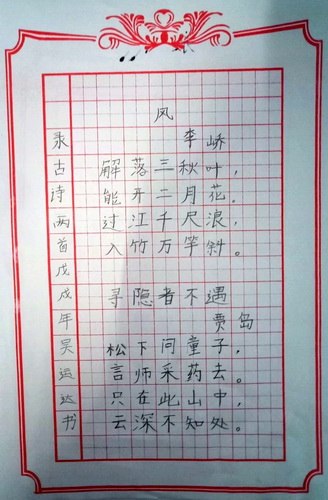 风
李峤
解落三秋叶，
能开二月花。
过江千尺浪，
入竹万竿斜。
寻隐者不遇
贾岛
松下问童子，
言师采药去。
只在此山中，
云深不知处。
录古诗两首戊戌年吴运达书